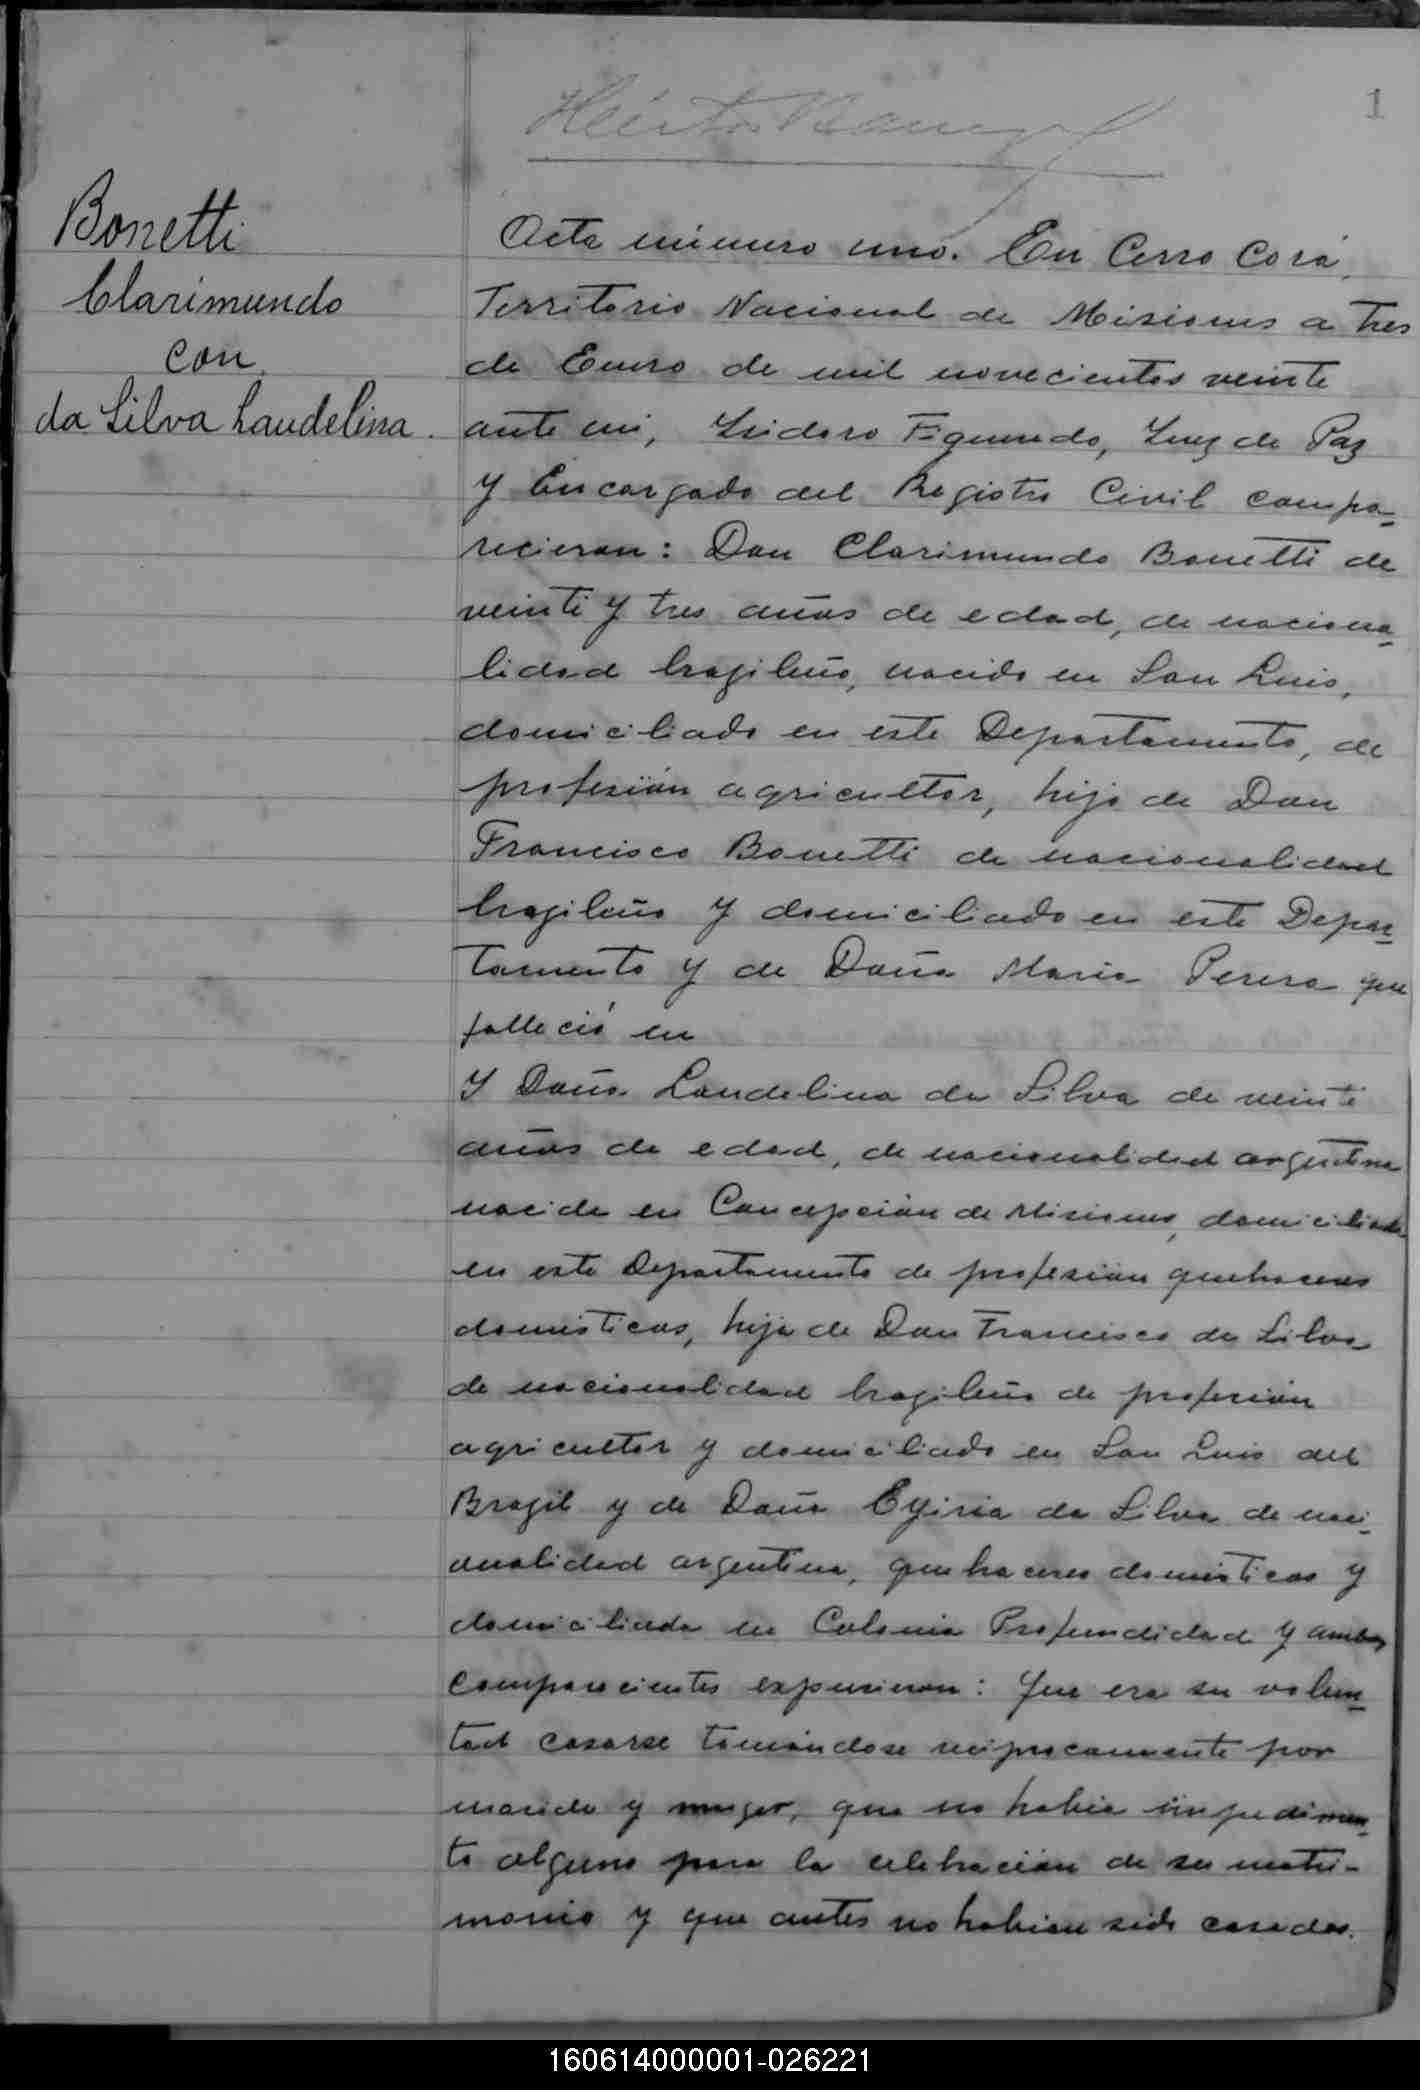 1
Bonetti
Clarimundo
con
da Silva Laudelina.
Acta número uno. En Cerro Corá,
Territorio Nacional de Misiones a tres
de Enero de mil novecientos veinte
ante mi, Isidoro Figueredo, Juez de Paz
y Encargado del Registro Civil compa-
recieron: Don Clarimundo Bonetti de
veinti y tres años de edad, de naciona-
lidad brazileño, nacido en San Luis,
domiciliado en este Departamento, de
profesión agricultor, hijo de Don
Francisco Bonetti de nacionalidad
brazileño y domiciliado en este Depar-
tamento y de Doña Maria Perera que
falleció en
y Doña Laudelina da Silva de veinte
años de edad, de nacionalidad argentina
nacida en Concepción de Misiones, domiciliada
en este Departamento de profesión quehaceres
domésticos, hija de Don Francisco da Silva
de nacionalidad brazileño de profesión
agricultor y domiciliado en San Luis del
Brazil y de Doña da Silva de naci-
onalidad argentina, quehaceres domésticos y
domiciliada en Colonia Profundidad y ambos
comparecientes expusieron: Que era su volun-
tad casarse tomándose reciprocamente por
marido y muger, que no habia impedimen-
to alguno para la celebración de su matri-
monio y que antes no habian sido casados.
160614000001-026221